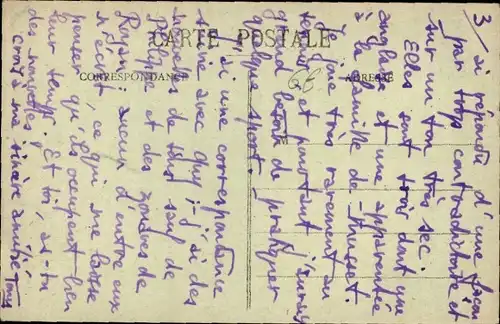 CARTE POSTALE
CORRESPONDANCE
ADRESSE
66
3/ si réponds d'une façon
par trop contradictoire et
sur un ton très sec.
Elles sont trois dont une
anglaise et une apparentée
à la famille de
Je joue très rarement au
tennis et pourtant j'aurai
grand besoin de pratiquer
quelque sport.
J'ai une correspondance
suivie avec Guy ; j'ai des
nouvelles de tous sauf de
Philippe et des zouaves de
aucun d'entre eux
n'écrit, ce qui me laisse
penser qu'ils occupent bien
leur temps. Et toi, as-tu
des nouvelles ?
crois à ma sincère amitié Tony